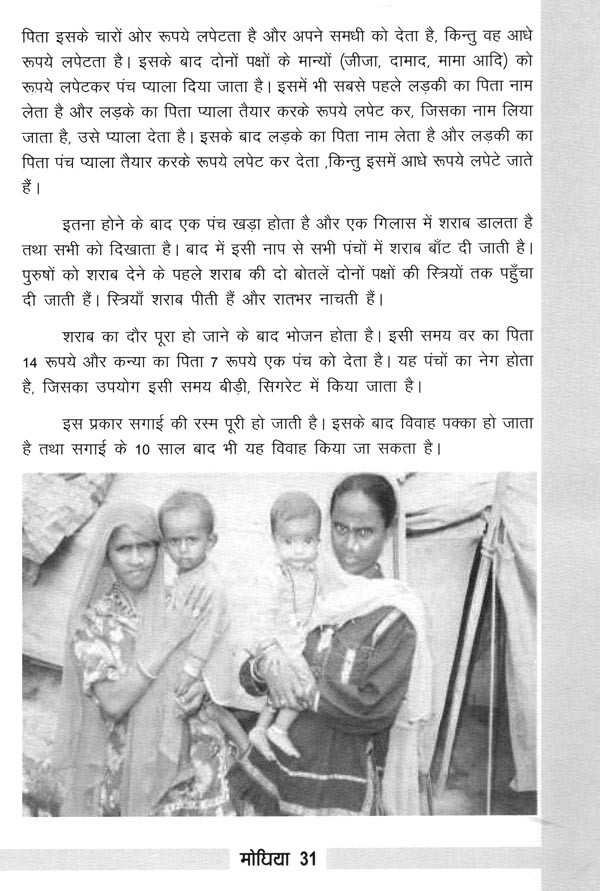 पिता इसके चारों ओर रूपये लपेटता है और अपने समधी को देता है, किन्तु वह आधे
रूपये लपेटता है। इसके बाद दोनों पक्षों के मान्यों (जीजा, दामाद, मामा आदि) को
रूपये लपेटकर पंच प्याला दिया जाता है। इसमें भी सबसे पहले लड़की का पिता नाम
लेता है और लड़के का पिता प्याला तैयार करके रूपये लपेट कर, जिसका नाम लिया
जाता है, उसे प्याला देता है। इसके बाद लड़के का पिता नाम लेता है और लड़की का
पिता पंच प्याला तैयार करके रूपये लपेट कर देता ,किन्तु इसमें आधे रूपये लपेटे जाते
हैं।
इतना होने के बाद एक पंच खड़ा होता है और एक गिलास में शराब डालता है
तथा सभी को दिखाता है। बाद में इसी नाप से सभी पंचों में शराब बाँट दी जाती है।
पुरुषों को शराब देने के पहले शराब की दो बोतलें दोनों पक्षों की स्त्रियों तक पहुँचा
दी जाती हैं। स्त्रियाँ शराब पीती हैं और रातभर नाचती हैं।
शराब का दौर पूरा हो जाने के बाद भोजन होता है। इसी समय वर का पिता
14 रूपये और कन्या का पिता 7 रूपये एक पंच को देता है। यह पंचों का नेग होता
है, जिसका उपयोग इसी समय बीड़ी, सिगरेट में किया जाता है।
इस प्रकार सगाई की रस्म पूरी हो जाती है। इसके बाद विवाह पक्का हो जाता
है तथा सगाई के 10 साल बाद भी यह विवाह किया जा सकता है।
मोघिया 31